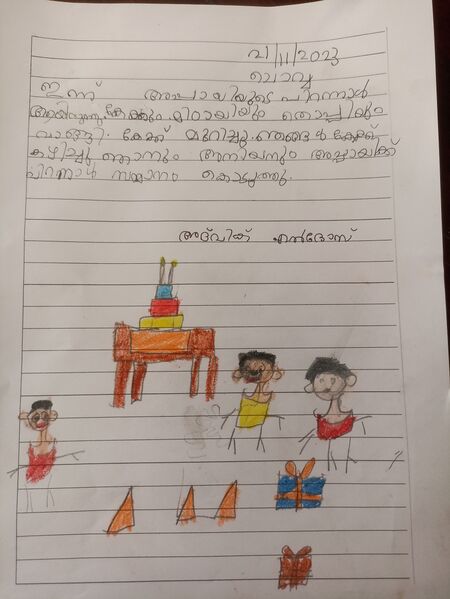 21/11/2023
ചൊവ്വ
ഇന്ന് അപ്പായിയുടെ പിറന്നാൾ
ആയിരുന്നു. കേക്കും മിഠായിയും തൊപ്പിയും
വാങ്ങി. കേക്ക് മുറിച്ചു. ഞങ്ങൾ കേക്ക്
കഴിച്ചു ഞാനും അനിയനും അപ്പായ്ക്ക്
പിറന്നാൾ സമ്മാനം കൊടുത്തു.
അദ്വിക് എൽദോസ്